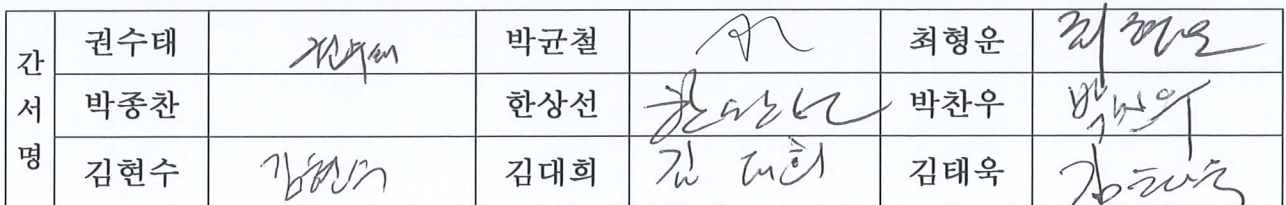 간 권수태 권수태 박균철 최형운 최형운
서 박종찬 한상선 한상선 박찬우 박찬우
명 김현수 김현수 김대희 김대희 김태욱 김태욱